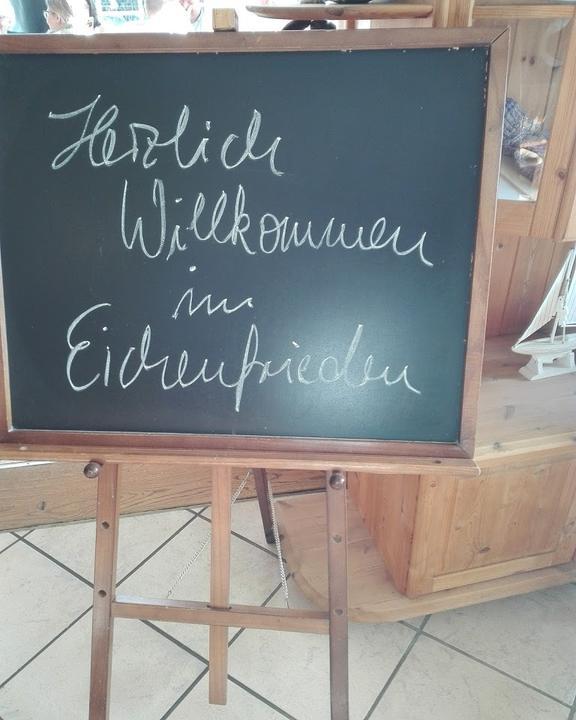 Herzlich
Willkommen
im
Eichenfrieden